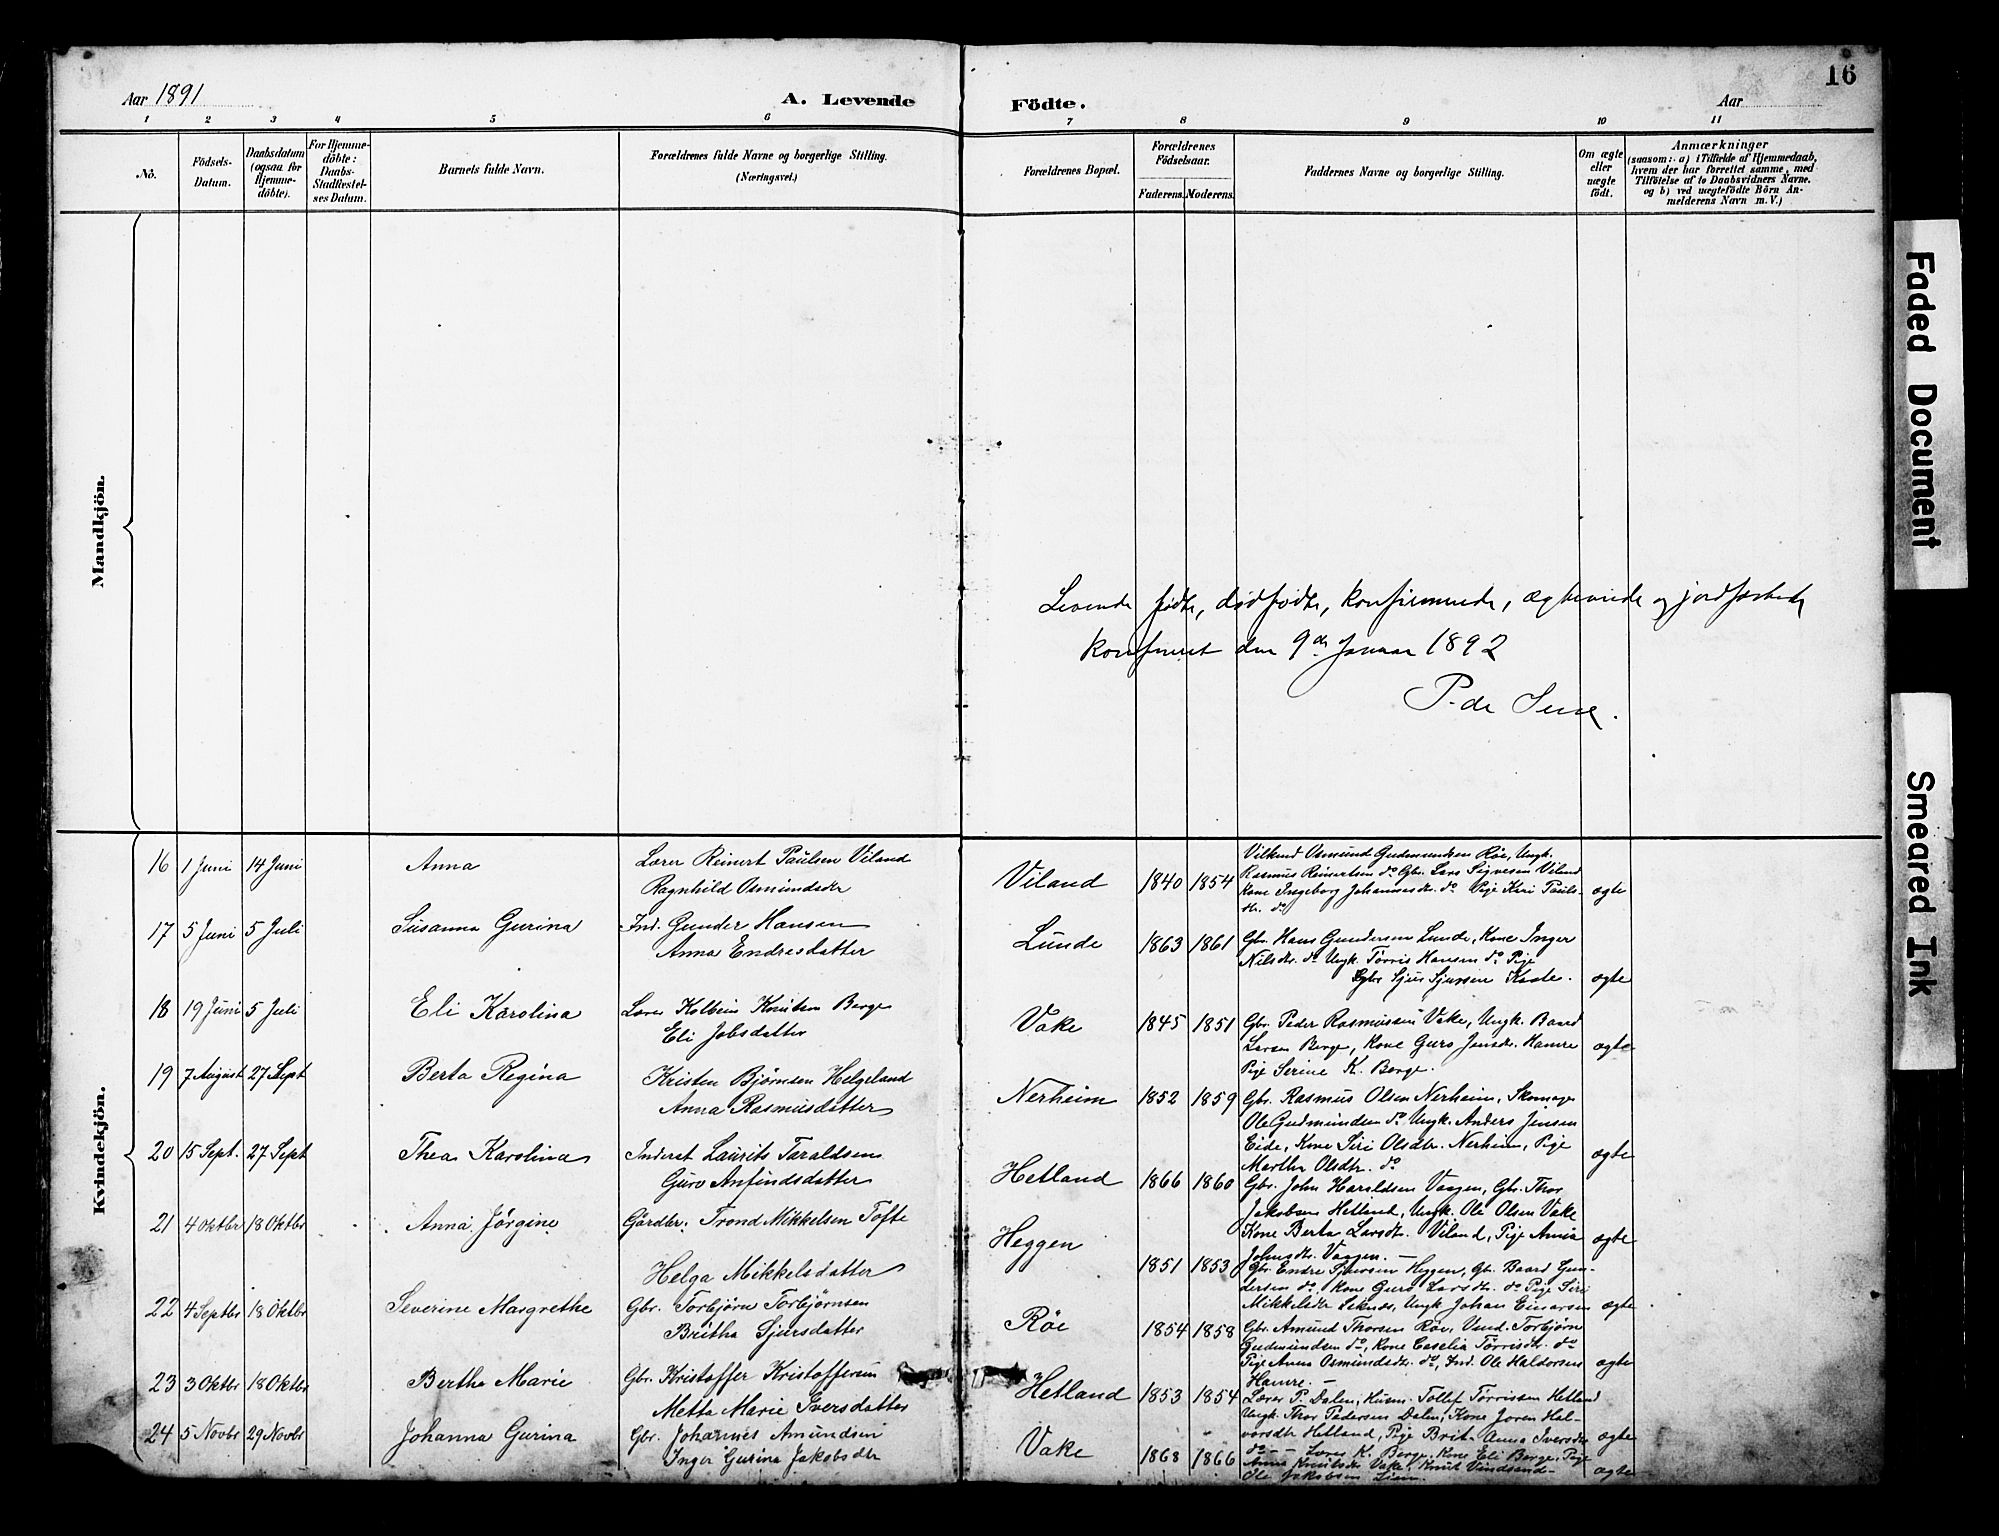 16
Aar 1891
A. Levende
Födte.
Aar
1 2 3 4 5 6 7 8 9 10 11
No.
Födsels-
Datum.
Daabsdatum
(ogsaa for
Hjemme-
döbte).
For Hjemme-
döbte:
Daabs-
Stadfæstel-
ses Datum.
Barnets fulde Navn.
Forældrenes fulde Navne og borgerlige Stilling.
(Næringsvei.)
Forældrenes Bopæl.
Forældrenes
Födselsaar.
Faderens. Moderens.
Faddernes Navne og borgerlige Stilling.
Om ægte
eller
uægte
født.
Anmærkninger
(saasom: a) i Tilfælde af Hjemmedaab,
hvem der har forrettet samme, med
Tilföielse af to Daabsvidners Navne.
og b) ved uægtefödte Börn An-
melderens Navn m. V.)
Mandkjön.
Levende fødte, dødfødte, konfirmerede, ægteviede og jordfæstede
konfereret den 9de Januar 1892
P. de Seue.
Kvindekjön.
16 1 Juni 14 Juni Anna
Lærer Reinert Paulsen Viland
Ragnhild Osmundsdtr
Viland 1840 1854
Osmund Gudmundsen Røe, Ungk.
Rasmus Reinertsen do Gbr. Lars Sigvesen Viland
Kone Ingeborg Johannesdtr. do Pige Kari Pauls-
dtr. do
ægte
17 5 Juni 5 Juli Susanna Gurina
Ind. Gunder Hansen
Anna Endresdatter
Lunde 1863 1861
Gbr. Hans Gundersen Lunde, Kone Inger
Nilsdtr. do Ungk. Tørris Hansen do Pige
Sjur Sjursen
ægte
18 19 Juni 5 Juli Eli Karolina
Lærer Kolbein Knutsen Berge
Eli Jobsdatter
Vake 1845 1851
Gbr. Peder Rasmussen Vake, Ungk. Baard
Larsen Berge, Kone Guro Jonsdtr. Hamre
Pige Serine K. Berge.
ægte
19 7 August 27 Sept Berta Regina
Kristen Bjørnsen Helgeland
Anna Rasmusdatter
Nerheim 1852 1859
Gbr. Rasmus Olsen Nerheim, Skomager
Ole Gudmundsen do Ungk. Anders Jensen
Eide, Kone Siri Olsdtr. Nerheim, Pige
Martha Olsdtr. do
ægte
20 15 Sept. 27 Sept Thea Karolina
Inderst Laurits Taraldsen
Guro Anfindsdatter
Hetland 1866 1860
Gbr. John Haraldsen Vaagen, Gbr. Thor
Jakobsen Hetland, Ungk. Ole Olsen Vake
Kone Berta Larsdtr. Viland, Pige Anna
Johnsdtr. Vaagen. —
ægte
21 4 Oktbr 18 Oktbr Anna Jørgine
Gårdbr. Trond Mikkelsen Tofte
Helga Mikkelsdatter
Heggen 1851 1853
Gbr. Endre Sjursen Heggen, Gb. Baard Gun-
dersen do, Kone Guro Larsdtr. do Pige Siri
Mikkelsdtr Seknes, Ungk Johan Einarsen
ægte
22 4 Septbr 18 Oktbr Severine Margrethe
Gbr. Torbjørn Torbjørnsen
Britha Sjursdatter
Røe 1854 1858
Gbr. Amund Thorsen Røe, Torbjørn
Gudmundsen do, Kone Caselia Tørrisdtr. do
Pige Anna Osmundsdtr. do, Ind. Ole Haldorsen
Hamre. —
ægte
23 3 Oktbr 18 Oktbr Bertha Marie
Gbr. Kristoffer Kristoffersen
Metta Marie Iversdatter
Hetland 1853 1854
Lærer P. Dalen, Husm. Tollef Tørrissen Hetland
Ungk. Thor Pedersen Dalen, Kone Joren Hal-
vorsdtr Hetland, Pige Brit-Anna Iversdtr
do
ægte
24 5 Novbr 29 Novbr Johanna Gurina
Gbr. Johannes Amundsen
Inger Gurina Jakobsdtr
Vake 1868 1866
Lærer K. Berge, Kone Eli Berge, Pige
Anna Knutsdtr Vake, Knut
Ole Jakobsen Lien.
ægte
Faded Document
Smeared Ink